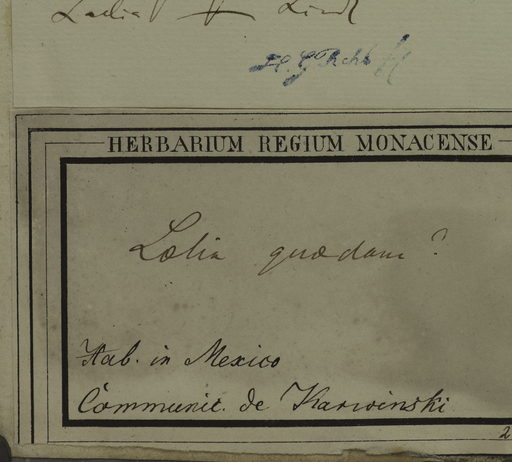 Laelia Lindl
HERBARIUM REGIUM MONACENSE
Laelia quaedam?
Hab. in Mexico
Communic. de Karwinski
2